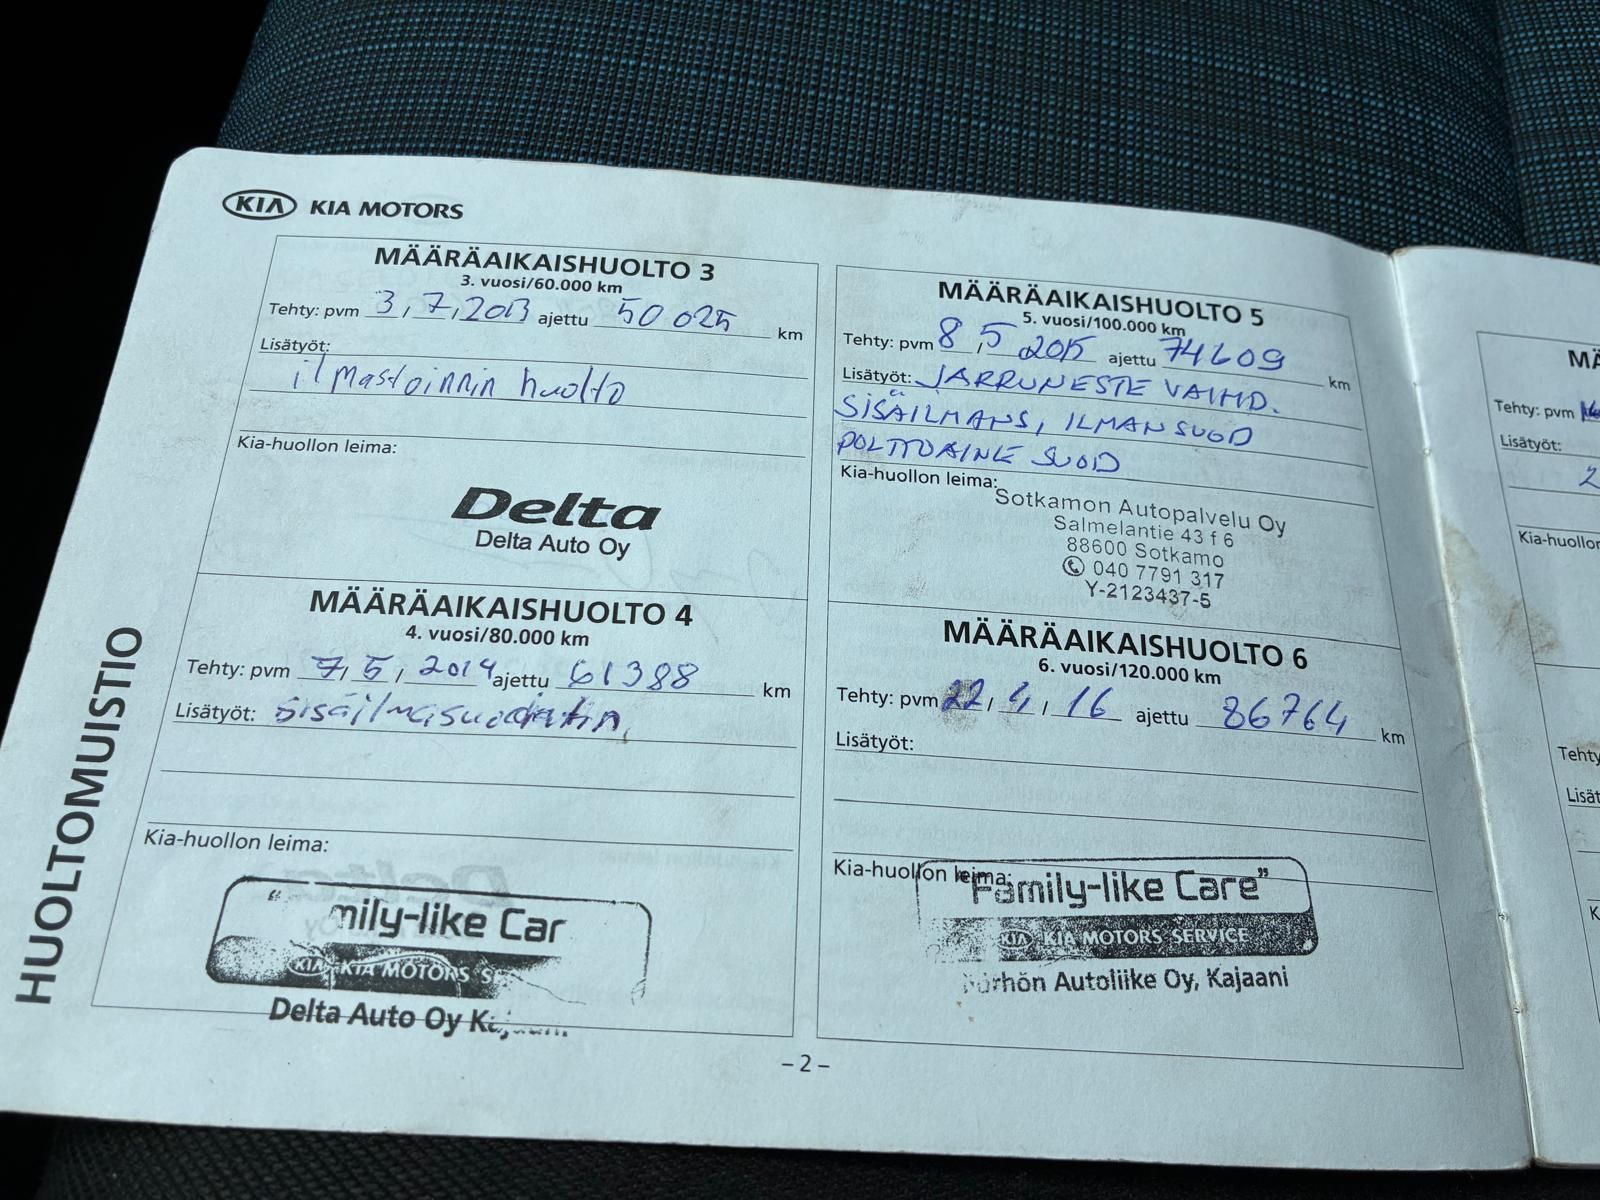 KIA KIA MOTORS
MÄÄRÄAIKAISHUOLTO 3
3. vuosi/60.000 km
Tehty: pvm 3,7,2013 ajettu 50 025 km
Lisätyöt:
ilmastoinnin huolto
Kia-huollon leima:
Delta
Delta Auto Oy
MÄÄRÄAIKAISHUOLTO 4
4. vuosi/80.000 km
Tehty: pvm 7,5,2014 ajettu 61388 km
Lisätyöt:
Kia-huollon leima:
"mily-like Car
KIA KIA MOTORS S
Delta Auto Oy
MÄÄRÄAIKAISHUOLTO 5
5. vuosi/100.000 km
Tehty: pvm 8,5 2015 ajettu 74609 km
Lisätyöt: JARRUNESTE VAIHD.
SISÄILMANS, ILMANSUOD
POLTTOAINE SUOD
Kia-huollon leima:
Sotkamon Autopalvelu Oy
Salmelantie 43 f 6
88600 Sotkamo
040 7791 317
Y-2123437-5
MÄÄRÄAIKAISHUOLTO 6
6. vuosi/120.000 km
Tehty: pvm 22,4,16 ajettu 86764 km
Lisätyöt:
Kia-huollon leima:
"Family-like Care"
KIA KIA MOTORS SERVICE
Autoliike Oy, Kajaani
HUOLTOMUISTIO
–2–
MÄ
Tehty: pvm
Lisätyöt:
2
Kia-huollon
Tehty
Lisät
K